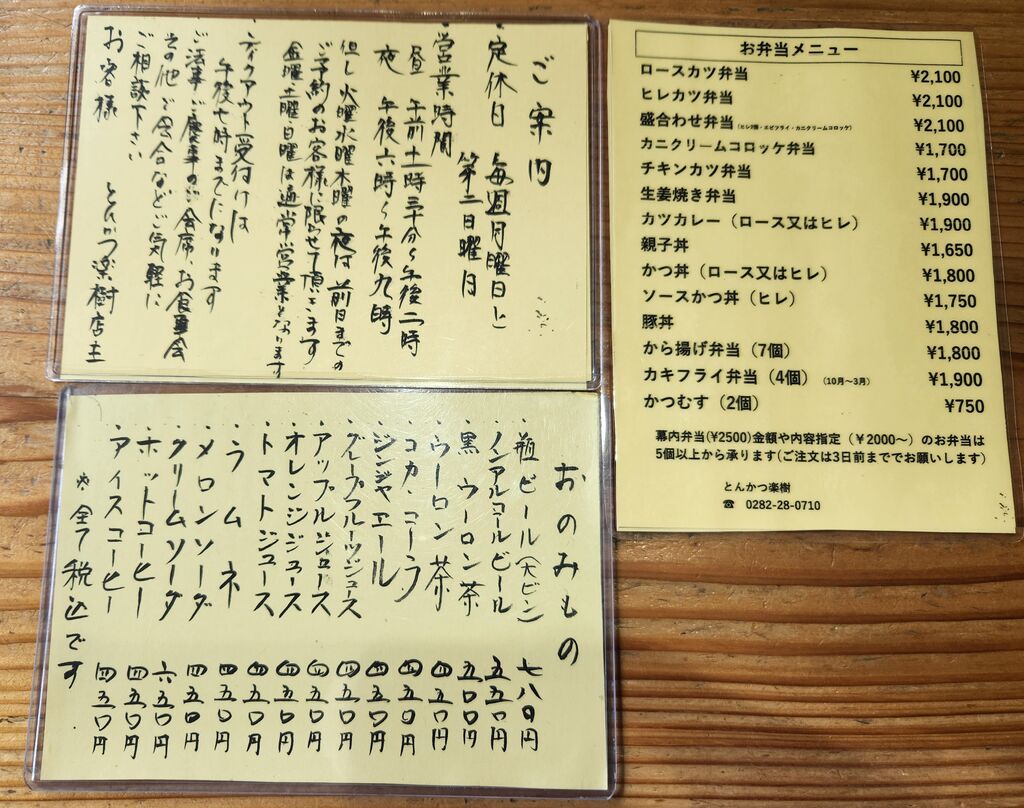 ご案内
・定休日 毎週月曜日と
第二日曜日
・営業時間
昼 午前十一時三十分〜午後二時
夜 午後六時〜午後九時
但し火曜水曜木曜の夜は前日までの
ご予約のお客様に限らせて頂いてます
金曜土曜日曜は通常営業となります
・テイクアウト受付けは
午後七時までになります
ご法事ご慶事のご会席、お食事会
その他ご会合などご気軽に
ご相談下さい
お客様 とんかつ楽樹店主
お弁当メニュー
ロースカツ弁当 ¥2,100
ヒレカツ弁当 ¥2,100
盛合わせ弁当(ヒレ2個・エビフライ・カニクリームコロッケ) ¥2,100
カニクリームコロッケ弁当 ¥1,700
チキンカツ弁当 ¥1,700
生姜焼き弁当 ¥1,900
カツカレー(ロース又はヒレ) ¥1,900
親子丼 ¥1,650
かつ丼(ロース又はヒレ) ¥1,800
ソースかつ丼(ヒレ) ¥1,750
豚丼 ¥1,800
から揚げ弁当(7個) ¥1,800
カキフライ弁当(4個) (10月〜3月) ¥1,900
かつむす(2個) ¥750
幕内弁当(¥2500)金額や内容指定(¥2000〜)のお弁当は
5個以上から承ります(ご注文は3日前まででお願いします)
とんかつ楽樹
☎ 0282-28-0710
おのみもの
・瓶ビール(大ビン) 七八〇円
・ノンアルコールビール 五五〇円
・黒ウーロン茶 五〇〇円
・ウーロン茶 四五〇円
・コカ・コーラ 四五〇円
・ジンジャエール 四五〇円
・グレープフルーツジュース 四五〇円
・アップルジュース 四五〇円
・オレンジジュース 四五〇円
・トマトジュース 四五〇円
・ラムネ 四五〇円
・メロンソーダ 四五〇円
・クリームソーダ 六五〇円
・ホットコーヒー 四五〇円
・アイスコーヒー 四五〇円
※全て税込です